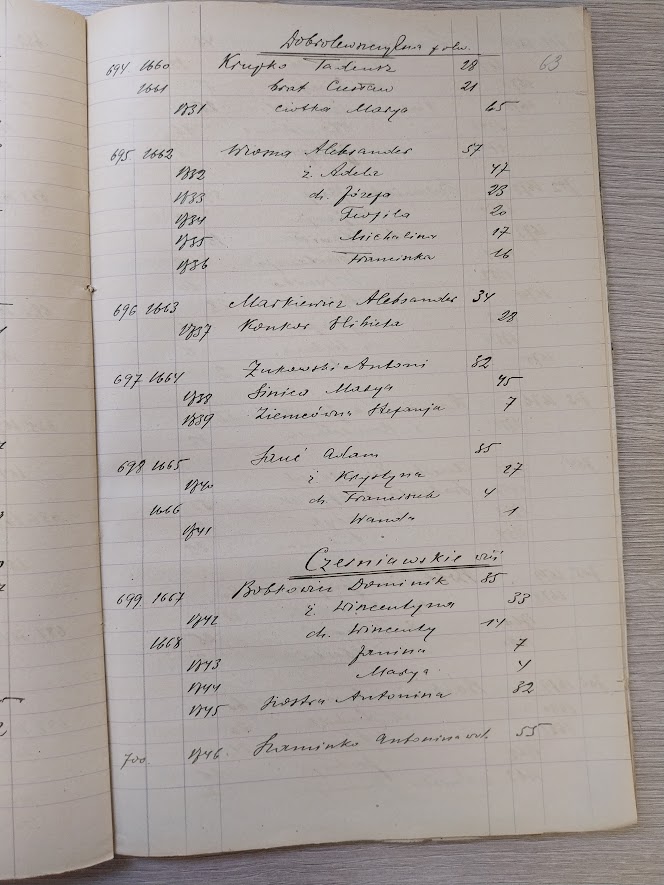 Dobrolewszczyzna folw.
63
694 1660 Krupko Tadeusz 28
1661 brat Czesław 21
1731 ciotka Marya 65
695 1662 Aleksander 57
1732 ż. Adela 47
1733 ch. Józefa 23
1734 Teofila 20
1735 Michalina 17
1736 Franciszka 16
696 1663 Markiewicz Aleksander 34
1737 Konkor Elżbieta 28
697 1664 Żukowski Antoni 82
1738 Sinica Marya 45
1739 Ziemcówna Stefanja 7
698 1665 Adam 35
1740 ż Krystyna 27
1666 ch. Franciszek 4
1741 Wanda 1
Cześniawskie wieś
699 1667 Bobkowicz Dominik 35
1742 ż. Wincentyna 33
1668 ch. Wincenty 14
1743 Janina 7
1744 Marya 4
1745 siostra Antonina 32
700 1746 Antonina wd. 55